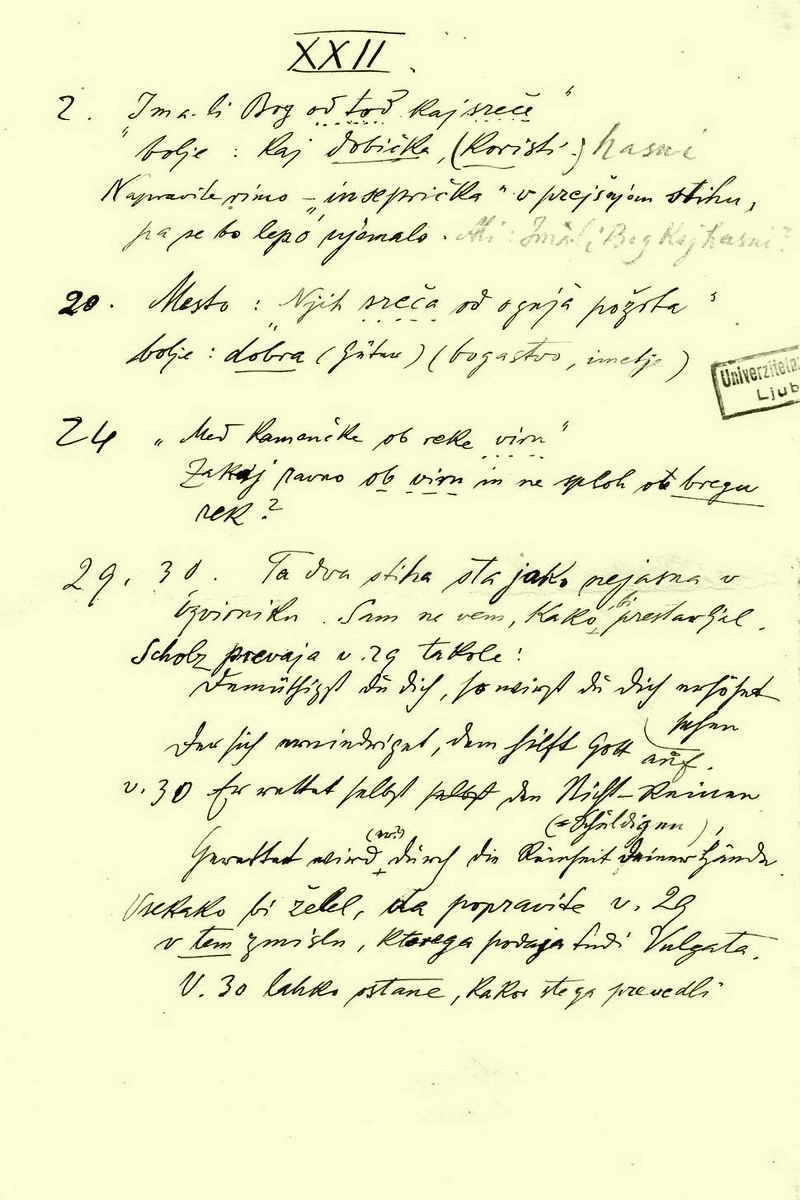 XXII.
2. Ima-li Bog od tod kaj sreče"
"bolje : kaj dobička, (koristi) hasni
Napravite rimo – "in seprička" v prejšnjem stihu,
pa se bo lepó ujemalo. Ali : Imà-li Bog kaj hasni?
20. Mesto : "Njih sreča od ognja požrta"
bolje : dobra (Güter) (bogastvo, imetje)
Univerzitetna
Ljub
24 "Med kamenčke ob reke viru"
Zakaj ravno ob viru in ne sploh ob bregu
rek?
29, 30. Ta dva stiha sta jako nejasna v
izvirniku. Sam ne vem, kako bi prestavljal.
Scholz prevaja v. 29 takole:
Demüthigst du dich, so wirst du dich erhöhet
sehen
Der sich erniedriget, dem hilft Gott auf.
v. 30 Er rettet selbst selbst den Nicht-Reinen
(=Schuldigen),
Gerettet wird (er?) durch die Reinheit deiner Hände.
Vsekako bi želel, da popravite v. 29
v tem zmislu, kterega podaja tudi Vulgata.
V. 30 lahko ostane, kakor ste ga prevedli